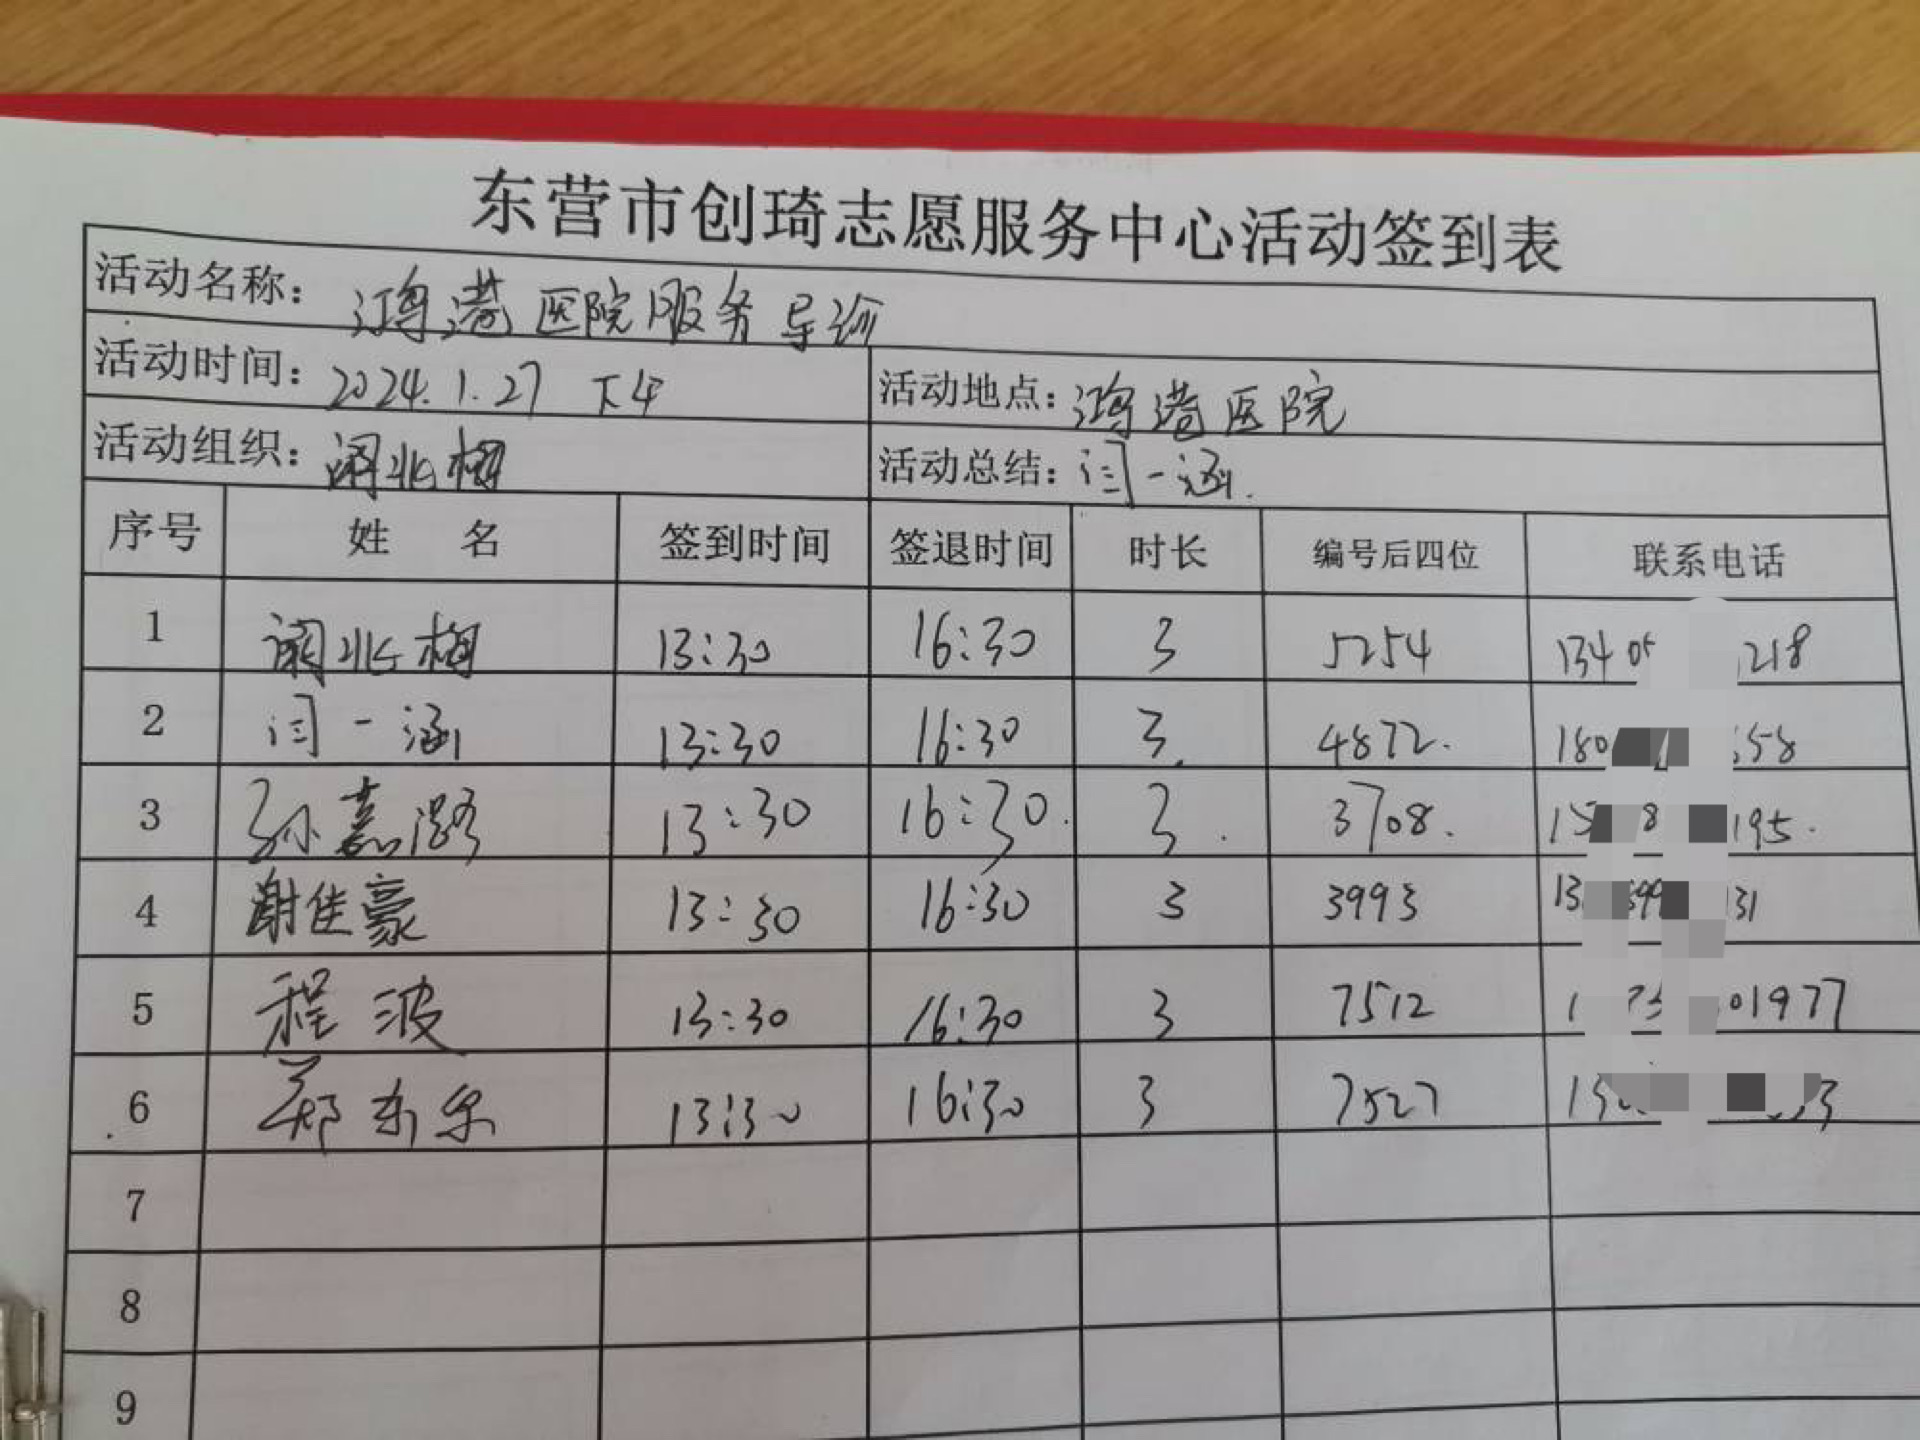 东营市创琦志愿服务中心活动签到表
活动名称：鸿港医院服务导诊
活动时间：2024.1.27 下午 活动地点：鸿港医院
活动组织： 活动总结：闫一涵.
序号 姓 名 签到时间 签退时间 时长 编号后四位 联系电话
1 13:30 16:30 3 5254 13405 218
2 闫一涵 13:30 16:30 3. 4872. 180 58
3 孙嘉潞 13:30 16:30. 3. 3708. 15 8 195.
4 谢佳豪 13:30 16:30 3 3993 13 99 31
5 程波 13:30 16:30 3 7512 1 73 01977
6 郑东乐 13:30 16:30 3 7527 3
7
8
9